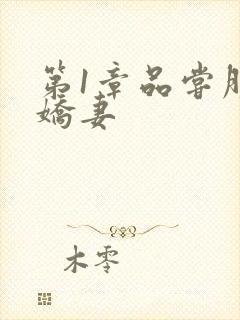 第1章品尝
娇妻
木零